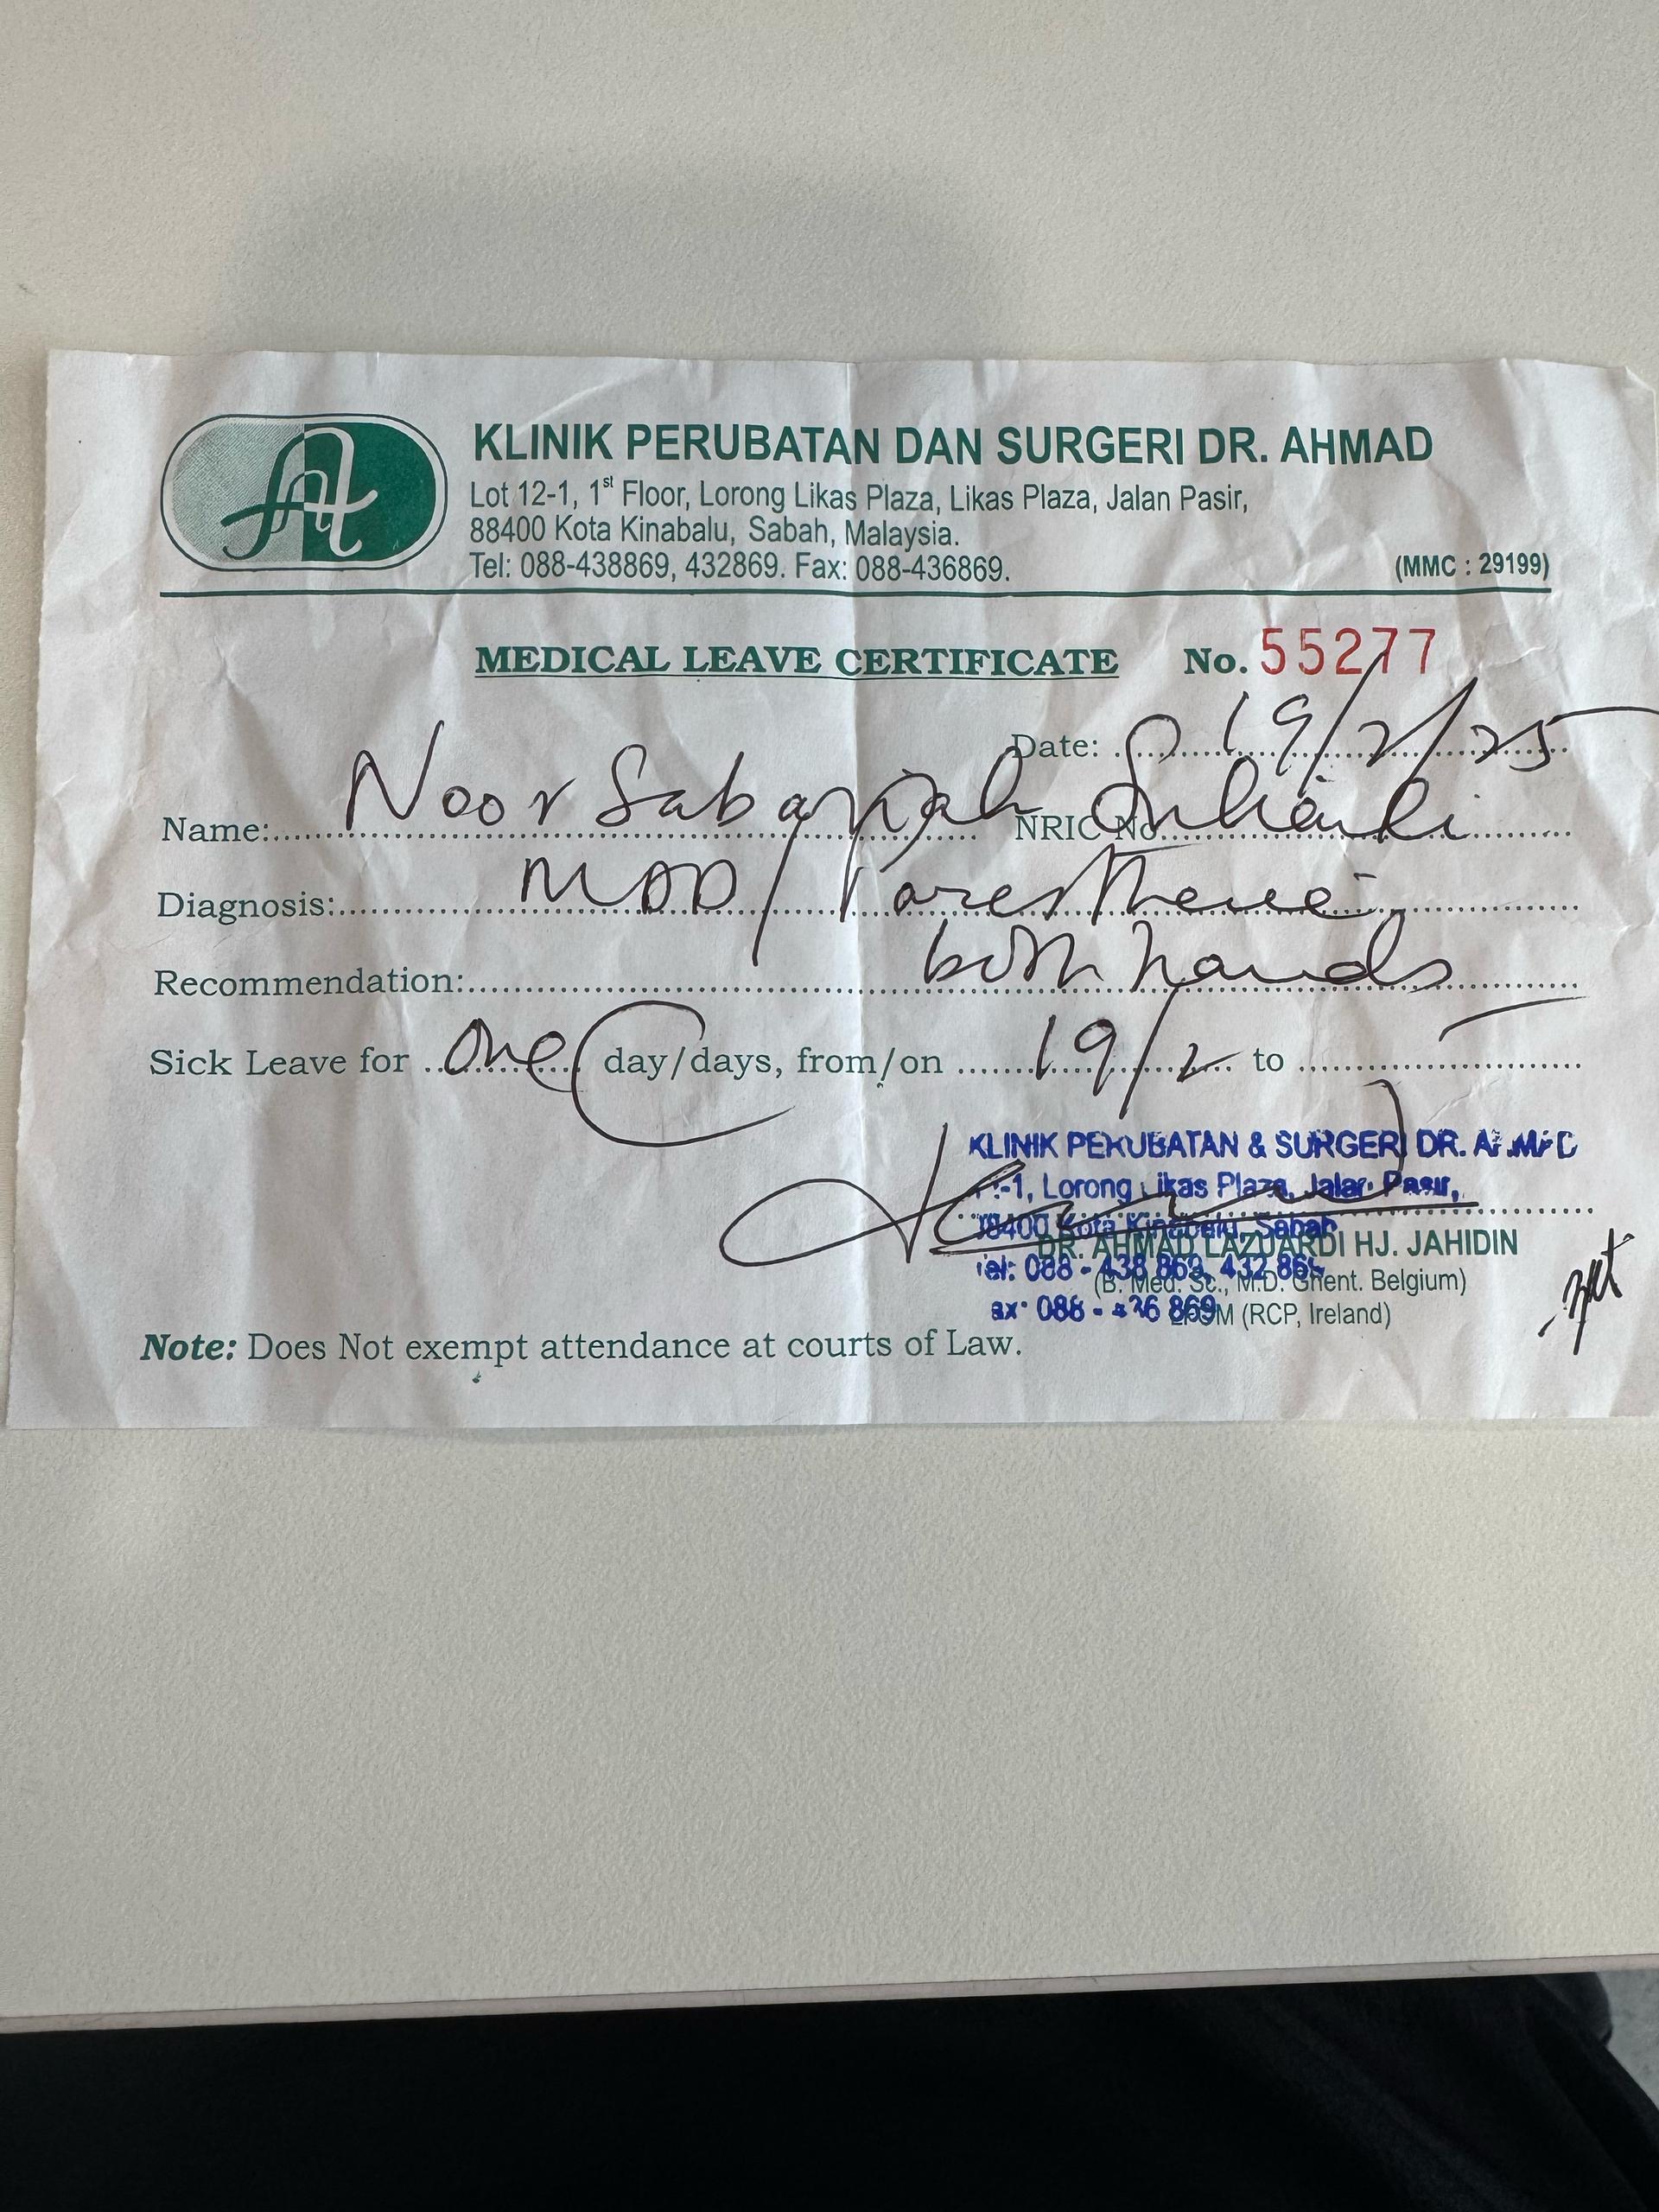 KLINIK PERUBATAN DAN SURGERI DR. AHMAD
Lot 12-1, 1st Floor, Lorong Likas Plaza, Likas Plaza, Jalan Pasir,
88400 Kota Kinabalu, Sabah, Malaysia.
Tel: 088-438869, 432869. Fax: 088-436869.
(MMC : 29199)
MEDICAL LEAVE CERTIFICATE No. 55277
Date: 19/2/25
Name: Noor Sabariah NRIC No Suhaili
Diagnosis: MDD/Paresthesia
Recommendation: both hands
Sick Leave for one day/days, from/on 19/2 to
KLINIK PERUBATAN & SURGERI DR. AHMAD
-1, Lorong Likas Plaza, Jalan Pasir,
88400 Kota Kinabalu, Sabah
DR. AHMAD LAZUARDI HJ. JAHIDIN
Tel: 088 - 438 869, 432 869
(B. Med. Sc., M.D. Ghent. Belgium)
Fax: 088 - 436 869
(RCP, Ireland)
Note: Does Not exempt attendance at courts of Law.